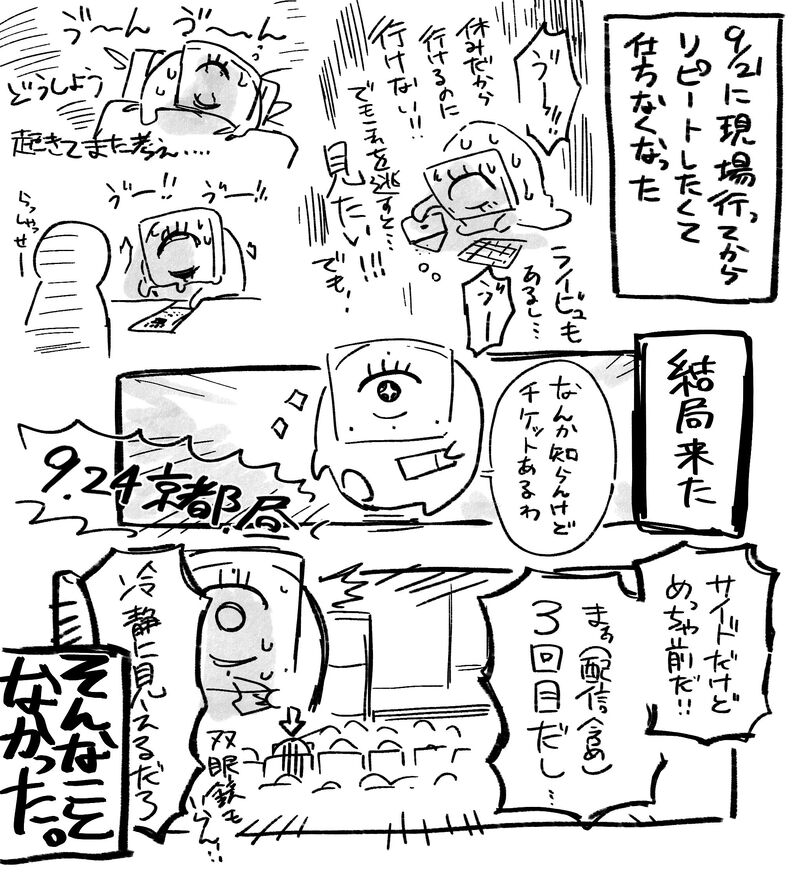 9/21に現場行ってから
リピートしたくて
仕ちなくなった
う"ー…
休みだから
行けるのに
行けない!!
でもこれを逃すと…
見たい!!!
でも、
ライビュも
あるし…
う"ー
う"〜ん う"〜ん
どうしよう
起きてまた考え……
う"ー!! う"ー!!
らっしゃっせー
結局来た
なんか知らんけど
チケットあるわ
9.24京都.局
サイドだけど
めっちゃ前だ!!
まぁ(配信含め)
3回目だし…
双眼鏡も
冷静に見えるだろ
そんなこと
なかった。